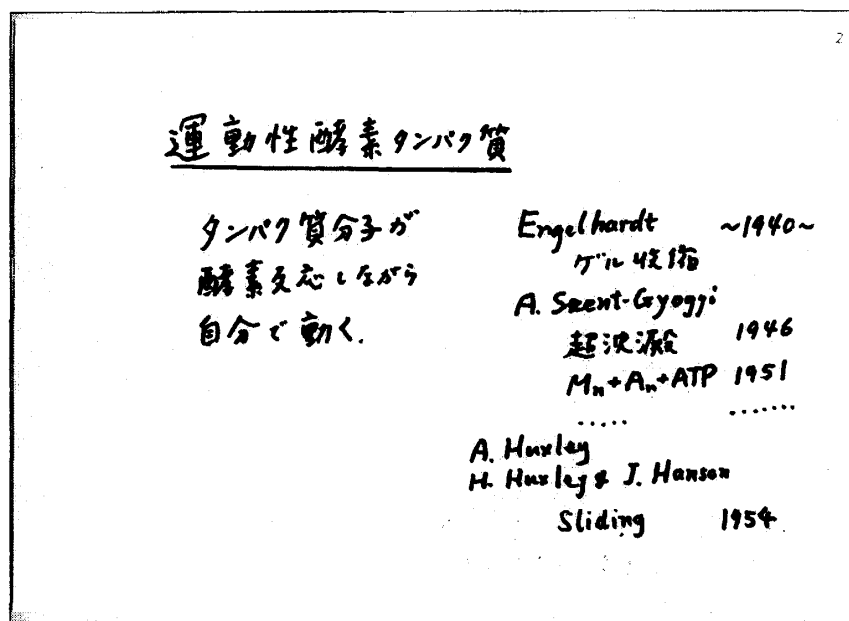 2
運動性酵素タンパク質
タンパク質分子が
酵素反応しながら
自分で動く.
Engelhardt ~1940~
ゲル収縮
A. Szent-Gyoggi
超沈澱 1946
Mn+An+ATP 1951
..... .......
A. Huxley
H. Huxley & J. Hanson
Sliding 1954